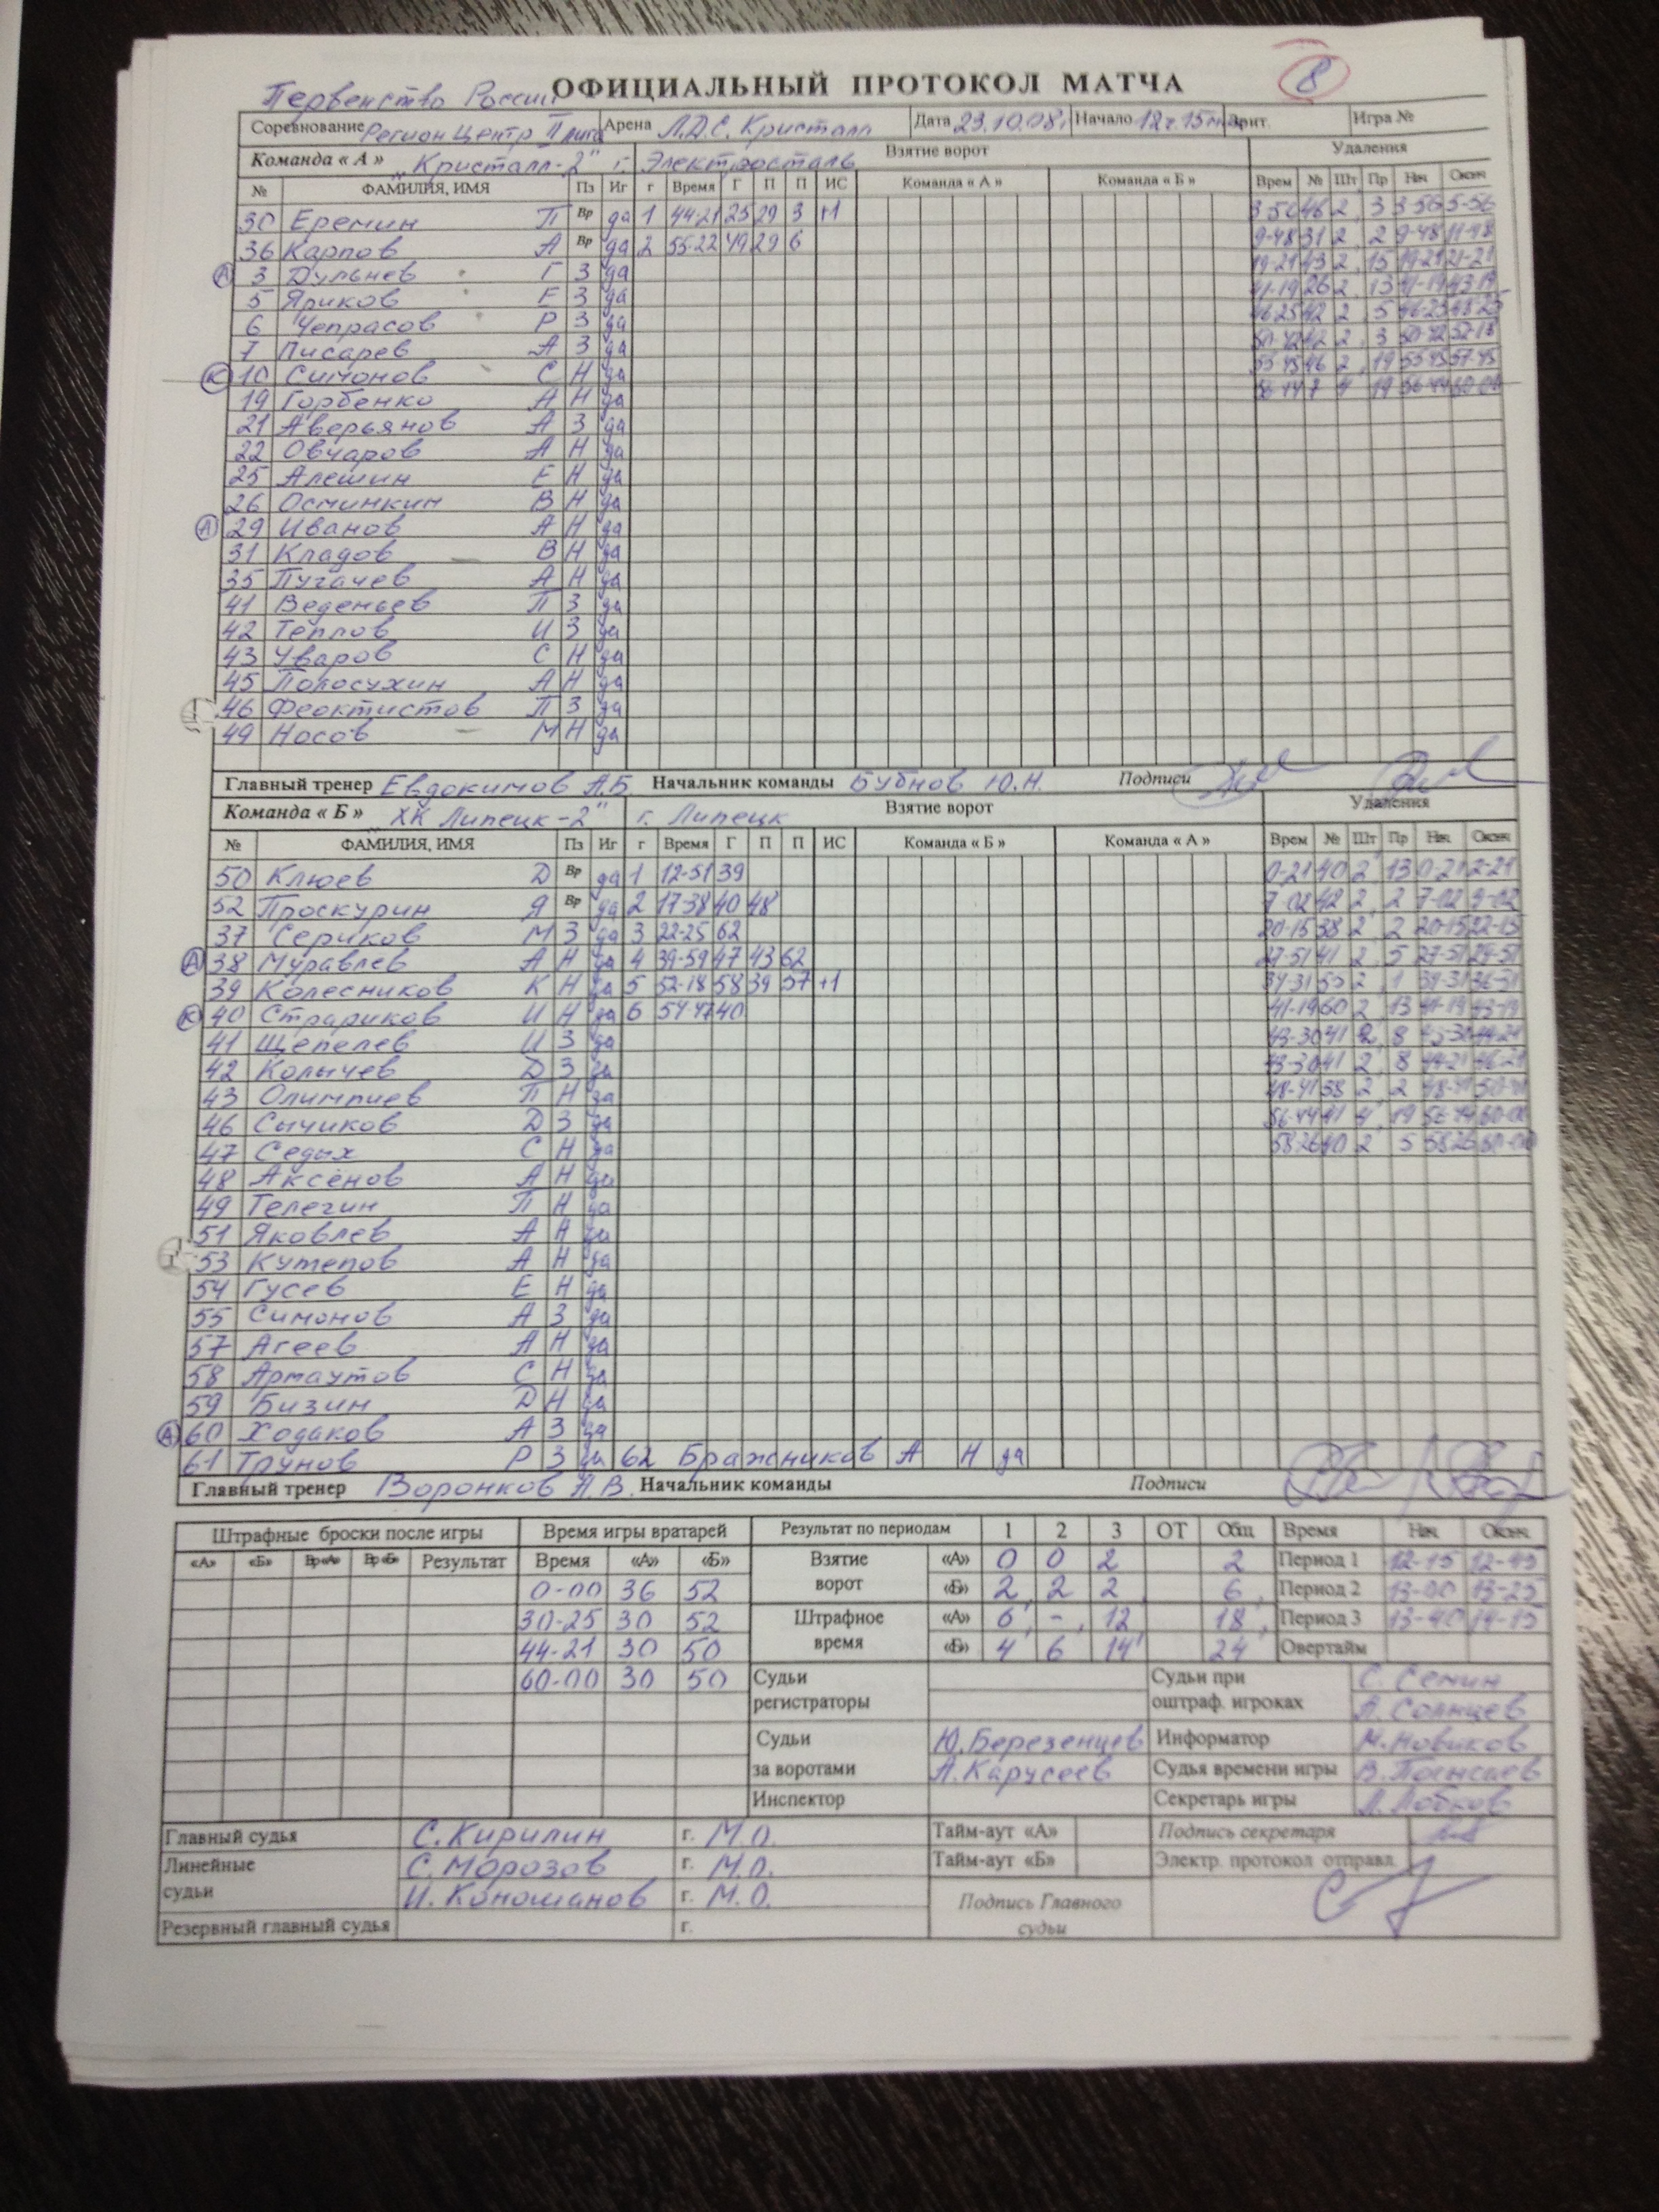 8
Первенство России ОФИЦИАЛЬНЫЙ ПРОТОКОЛ МАТЧА
Соревнование Регион Центр II лига Арена Л.Д.С. Кристалл Дата 23.10.08г Начало 12ч.15м Зрит. Игра №
Команда « А » "Кристалл-2" г. Электросталь Взятие ворот Удаления
№ ФАМИЛИЯ, ИМЯ Пз Иг г Время Г П П ИС Команда « А » Команда « Б » Врем № Шт Пр Нач Оконч
30 Еремин П Вр да 1 44-21 25 29 3 +1 3-56 46 2 3 3-56 5-56
36 Карпов А Вр да 2 55-22 49 29 6 9-48 31 2 2 9-48 11-48
А 3 Дульнев Г З да 19-21 43 2 15 19-21 21-21
5 Яриков Е З да 41-19 26 2 13 41-19 43-19
6 Чепрасов Р З да 46-25 42 2 5 46-25 48-25
7 Писарев А З да 42 2 3
К 10 Симонов С Н да 55-45 46 2 19 55-45 57-45
19 Горбенко А Н да 56-44 7 4 19 56-44 60-00
21 Аверьянов А З да
22 Овчаров А Н да
25 Алешин Е Н да
26 Осминкин В Н да
А 29 Иванов А Н да
31 Кладов В Н да
35 Пугачев А Н да
41 Веденьев П З да
42 Теплов И З да
43 Уваров С Н да
45 Полосухин А Н да
46 Феоктистов П З да
49 Носов М Н да
Главный тренер Евдокимов А.Б. Начальник команды Бубнов Ю.Н. Подписи
Команда « Б » "ХК Липецк-2" г. Липецк Взятие ворот Удаления
№ ФАМИЛИЯ, ИМЯ Пз Иг г Время Г П П ИС Команда « Б » Команда « А » Врем № Шт Пр Нач Оконч
50 Клюев Д Вр да 1 12-51 39 0-21 40 2 13 0-21 2-21
52 Проскурин Я Вр да 2 17-38 40 48 7-02 42 2 2 7-02 9-02
37 Сериков М З да 3 22-25 62 20-15 38 2 2 20-15 22-15
А 38 Муравлев А Н да 4 39-59 47 43 62 27-51 41 2 5 27-51 29-51
39 Колесников К Н да 5 52-18 58 39 57 +1 34-31 55 2 1 34-31 36-31
К 40 Стариков И Н да 6 54-47 40 41-19 60 2 13 41-19 43-19
41 Щепелев И З да 43-30 41 2 8 43-30 44-21
42 Колычев Д З да 43-30 41 2 8 44-21 46-21
43 Олимпиев П Н да 48-41 38 2 2 48-41 50-41
46 Сычиков Д З да 56-44 41 4 19 56-44 60-00
47 Седых С Н да 58-26 40 2 5 58-26 60-00
48 Аксёнов А Н да
49 Телегин П Н да
51 Яковлев А Н да
53 Кутепов А Н да
54 Гусев Е Н да
55 Симонов А З да
57 Агеев А Н да
58 Армаутов С Н да
59 Бизин Д Н да
А 60 Ходаков А З да
61 Трунов Р З да 62 Бражников А Н да
Главный тренер Воронков А.В. Начальник команды Подписи
Штрафные броски после игры Время игры вратарей Результат по периодам 1 2 3 ОТ Общ Время Нач. Оконч.
«А» «Б» Вр«А» Вр«Б» Результат Время «А» «Б» Взятие ворот «А» 0 0 2 2 Период 1 12-15 12-45
0-00 36 52 «Б» 2 2 2 6 Период 2 13-00 13-25
30-25 30 52 Штрафное время «А» 6 - 12 18 Период 3 13-40 14-15
44-21 30 50 «Б» 4 6 14 24 Овертайм
60-00 30 50 Судьи регистраторы Судьи при оштраф. игроках С. Семин
А. Солнцев
Судьи за воротами Ю.Березенцев Информатор М.Новиков
А.Карусеев Судья времени игры
Инспектор Секретарь игры Л.Лобков
Главный судья С.Кирилин г. М.О. Тайм-аут «А» Подпись секретаря
Линейные судьи С.Морозов г. М.О. Тайм-аут «Б» Электр. протокол отправл.
И.Коношанов г. М.О. Подпись Главного судьи
Резервный главный судья г.